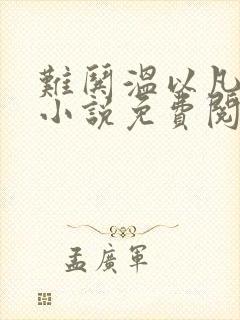 難鬨溫以凡
小説免費閱
孟廣軍